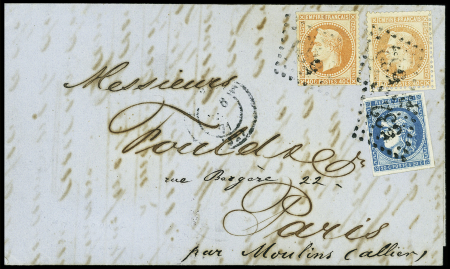 EMPIRE FRANÇAIS
EMPIRE FRANÇAIS
Messieurs
Foulds & Cie
rue Bergère 22
Paris
par Moulins (allier)